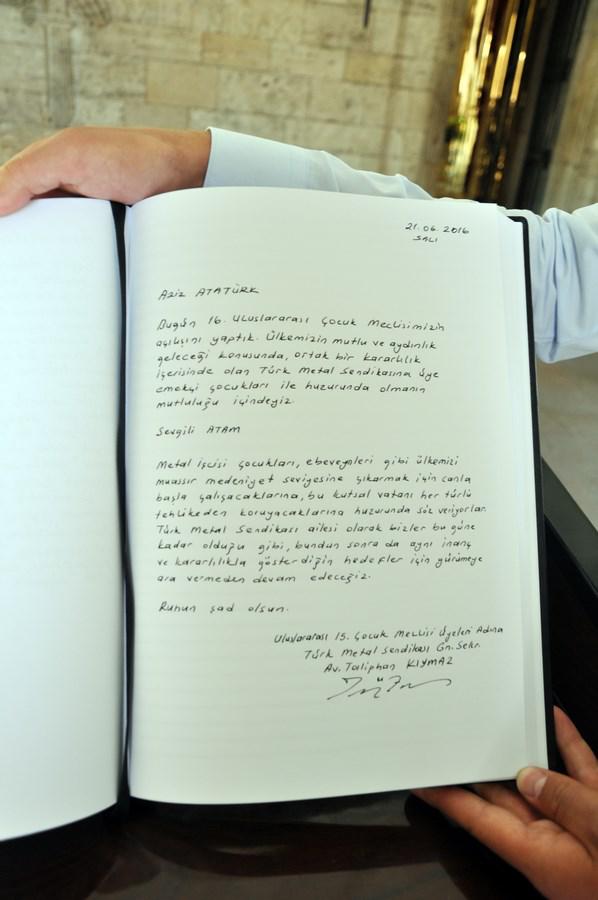 21.06.2016
SALI
Aziz ATATÜRK
Bugün 16. Uluslararası Çocuk Meclisimizin
açılışını yaptık. Ülkemizin mutlu ve aydınlık
geleceği konusunda, ortak bir kararlılık
içerisinde olan Türk Metal Sendikasına üye
emekçi çocukları ile huzurunda olmanın
mutluluğu içindeyiz.
Sevgili ATAM
Metal işçisi çocukları, ebeveynleri gibi ülkemizi
muassır medeniyet seviyesine çıkarmak için canla
başla çalışacaklarına, bu kutsal vatanı her türlü
tehlikeden koruyacaklarına huzurunda söz veriyorlar.
Türk Metal Sendikası ailesi olarak bizler bu güne
kadar olduğu gibi, bundan sonra da aynı inanç
ve kararlılıkla gösterdiğin hedefler için yürümeye
ara vermeden devam edeceğiz.
Ruhun şad olsun.
Uluslararası 15. Çocuk Meclisi Üyeleri Adına
Türk Metal Sendikası Gn. Sekr.
Av. Taliphan KIYMAZ